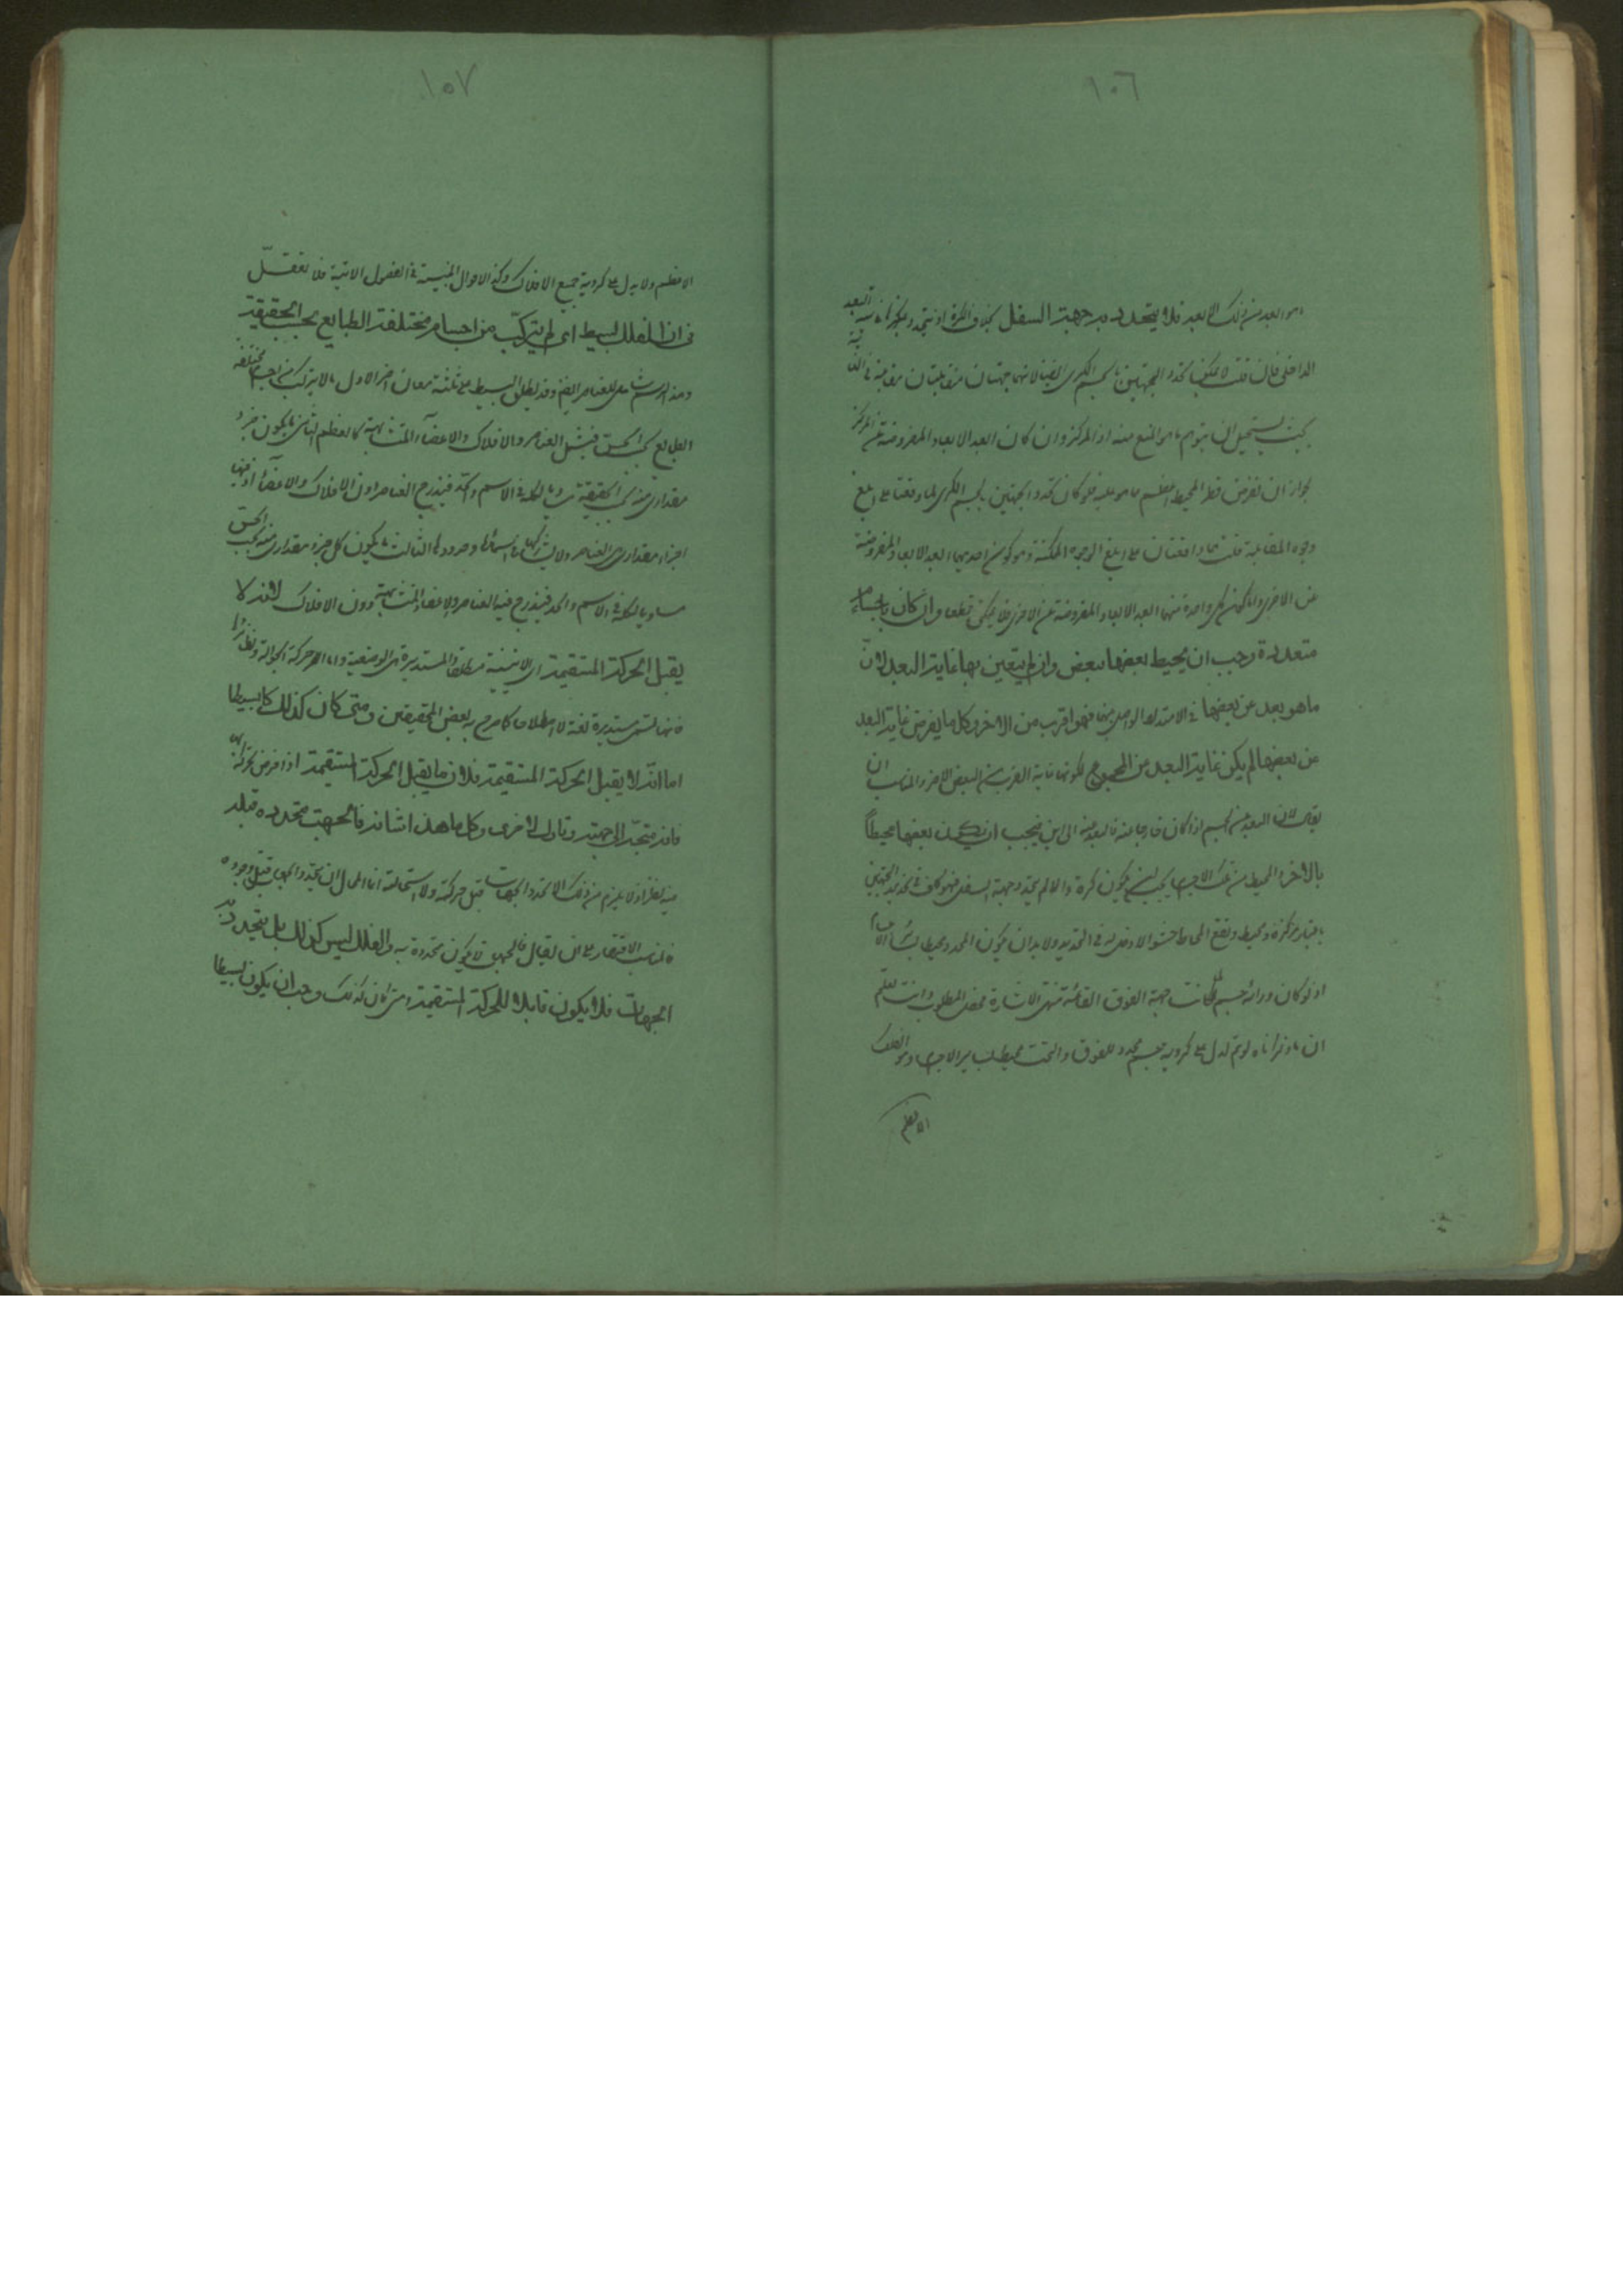 ١٠٦
هو ابعد من ذلك الابعد فلا يتحدد به جهة السفل بخلاف الكرة اذ يتحدد بمركزها غاية البعد
الداخلى فان قلت لا يمكن تحدد الجهتين بالجسم الكرى ايضا لانهما جهتان متقابلتان
بحيث يستحيل ان يتوهم ما هو ابلغ منه اذ المركز وان كان ابعد الابعاد المفروضة عن المركز
لجواز ان نفرض قطر المحيط اعظم مما هو عليه فلو كان تحدد الجهتين بالجسم الكرى لما وقعتا على ابلغ
وجوه المقابلة قلت هما واقعتان على ابلغ الوجوه الممكنة وهو كون احديهما ابعد الابعاد المفروضة
عن الاخرى واما كون كل واحدة منهما ابعد الابعاد المفروضة عن الاخرى فلا يمكن قطعا وان كان باجسام
متعددة وجب ان يحيط بعضها ببعض وان لم يتعين بها غاية البعد لان
ما هو بعد عن بعضها فى الامتداد الواصل بينهما فهو اقرب من الاخر وكل ما يفرض غاية البعد
من بعضها لم يكن غاية البعد من المجموع لكونها غاية القرب من البعض الاخر والمناسب ان
يقال لان البعد عن الجسم اذا كان خارجا منه فالبعد منه الى اين فيجب ان يكون بعضها محيطاً
بالاخر والمحيط من تلك الاجسام يجب ان يكون كرة والا لم يتحدد جهة السفل فهو كاف فى تحديد الجهتين
باعتبار مركزه ومحيطه ويقع المحاط حشوا لا دخل له فى التحديد ولا بد ان يكون المحدد محيطا بسائر الاجسام
اذ لو كان ورائه جسم لما كانت جهة الفوق القائمة منتهى الاشارة فحصل المطلوب وانت تعلم
ان ما ذكرناه لو تم لدل على كروية جسم محدد للفوق والتحت محيط بسائر الاجسام وهو الفلك
الاعظم
١٥٧
الاعظم ولا يدل على كروية جميع الافلاك وكذا الاحوال المثبتة فى الفصول الاتية فلا تغفل
فى ان الفلك بسيط اى لم يتركب من اجسام مختلفة الطبايع بحسب الحقيقة
وهذا الرسم شامل للعناصر ايضا وقد يطلق البسيط على ثلثة معان اخر الاول ما لا يتركب من اجسام مختلفة
الطبايع بحسب الحس فيشمل العناصر والافلاك والاعضاء المتشابهة كالعظم الثانى ما يكون جزء
مقدارى منه بحسب الحقيقة مساويا لكله فى الاسم والحد فيندرج العناصر دون الافلاك والاعضاء اذ فيها
اجزاء مقدارى هى العناصر ولا يشاركها فى اسمائها وحدودها الثالث ما يكون كل جزء مقدارى منه بحسب الحس
مساويا لكله فى الاسم والحد فيندرج فيه العناصر والاعضاء المتشابهة دون الافلاك لانه لا
يقبل الحركة المستقيمة اى الاينية مطلقا والمستديرة هى الوضعية واما حركة الجوالة ونظائرها
فانها تسمى مستديرة لغة لا اصطلاحا كما صرح به بعض المحققين ومتى كان كذلك كان بسيطا
اما انه لا يقبل الحركة المستقيمة فلان ما يقبل الحركة المستقيمة اذا فرض تحركه بها
فانه متجه الى جهة وتارك لاخرى وكل ما هذا شانه فالجهة متحددة قبله
فيه نظر اذ لا يلزم من ذلك الا تحدد الجهات قبل حركته ولا استحالة انما المحال ان يتحدد الجهة قبل وجوده
فالمناسب الاقتصار على ان يقال فالجهة لا يكون متحددة به والفلك ليس كذلك بل يتحدد به
الجهات فلا يكون قابلا للحركة المستقيمة ومتى كان كذلك وجب ان يكون بسيطا